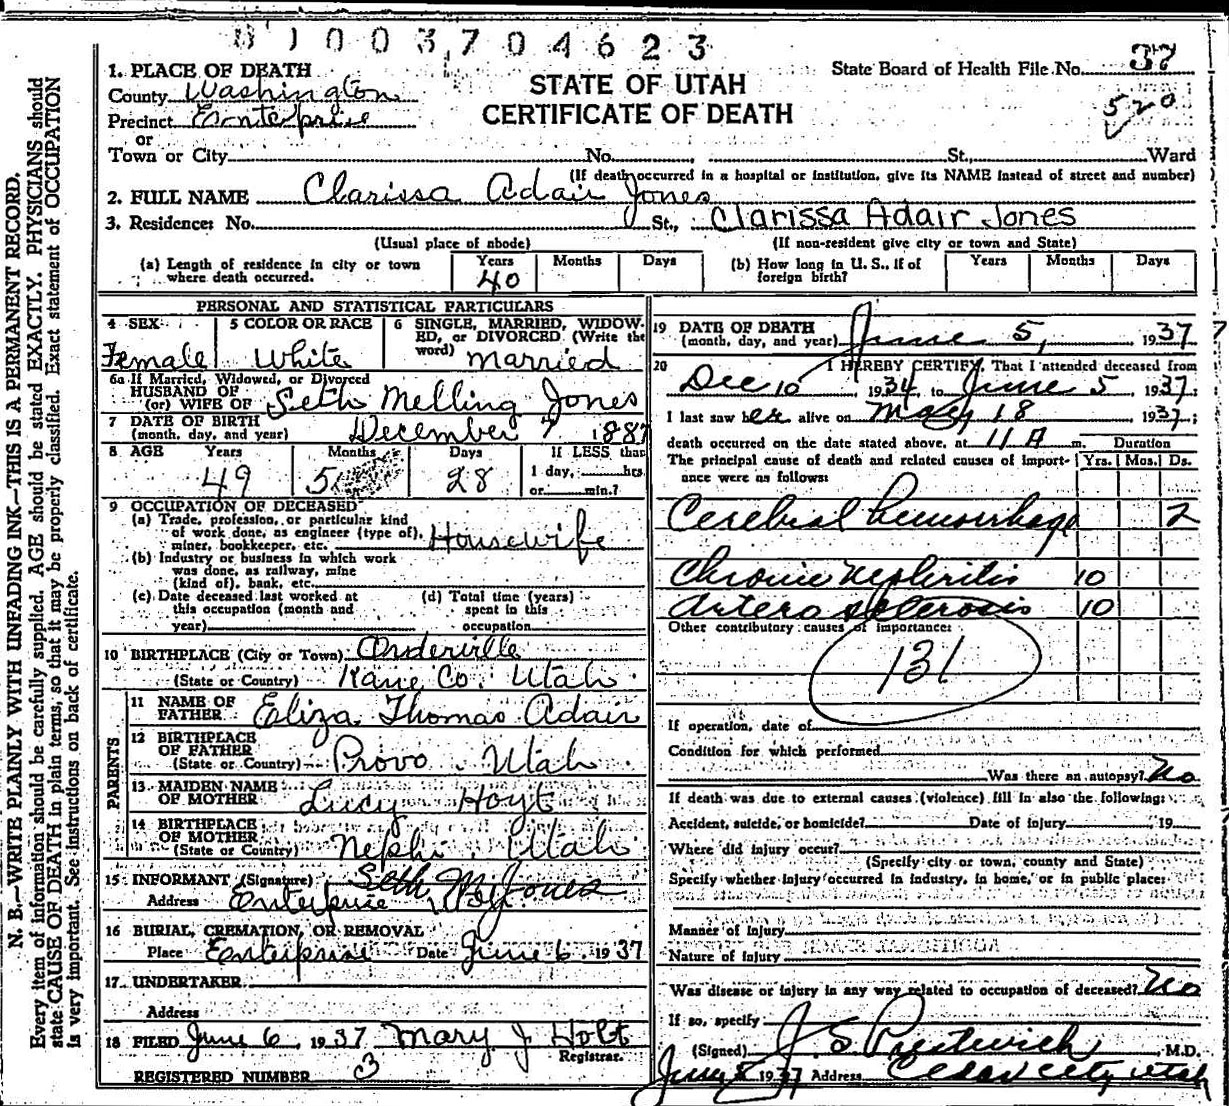 8 1 0 0 3 7 0 4 6 2 3
1. PLACE OF DEATH
County Washington
Precinct Enterprise
or
Town or City No. St., Ward
STATE OF UTAH
CERTIFICATE OF DEATH
State Board of Health File No. 37
520
(If death occurred in a hospital or institution, give its NAME instead of street and number)
2. FULL NAME Clarissa Adair Jones
3. Residence: No. St., Clarissa Adair Jones
(Usual place of abode) (If non-resident give city or town and State)
(a) Length of residence in city or town where death occurred. Years 40 Months Days
(b) How long in U. S., if of foreign birth? Years Months Days
PERSONAL AND STATISTICAL PARTICULARS
4 SEX Female
5 COLOR OR RACE White
6 SINGLE, MARRIED, WIDOW-
ED, or DIVORCED (Write the
word) Married
6a If Married, Widowed, or Divorced
HUSBAND OF
(or) WIFE OF Seth Melling Jones
7 DATE OF BIRTH
(month, day, and year) December 7 1887
8 AGE Years 49 Months 5 Days 28 If LESS than
1 day, hrs.
or min.?
9 OCCUPATION OF DECEASED
(a) Trade, profession, or particular kind
of work done, as engineer (type of),
miner, bookkeeper, etc. Housewife
(b) Industry or business in which work
was done, as railway, mine
(kind of), bank, etc.
(c) Date deceased last worked at
this occupation (month and
year)
(d) Total time (years)
spent in this
occupation
10 BIRTHPLACE (City or Town) Orderville
(State or Country) Kane Co. Utah
PARENTS
11 NAME OF
FATHER Eliza Thomas Adair
12 BIRTHPLACE
OF FATHER
(State or Country) Provo Utah
13 MAIDEN NAME
OF MOTHER Lucy Hoyt
14 BIRTHPLACE
OF MOTHER
(State or Country) Nephi Utah
15 INFORMANT (Signature) Seth M Jones
Address Enterprise
16 BURIAL, CREMATION, OR REMOVAL
Place Enterprise Date June 6 1937
17 UNDERTAKER
Address
18 FILED June 6, 1937 Mary J Holt
Registrar.
REGISTERED NUMBER 3
19 DATE OF DEATH
(month, day, and year) June 5, 1937
20 I HEREBY CERTIFY, That I attended deceased from
Dec 10 1934, to June 5 1937;
I last saw her alive on May 18 1937;
death occurred on the date stated above, at 11 A m. Duration
The principal cause of death and related causes of import-
ance were as follows: Yrs. Mos. Ds.
Cerebral hemorrhage 2
Chronic nephritis 10
Arterosclerosis 10
Other contributory causes of importance:
131
If operation, date of
Condition for which performed
Was there an autopsy? No
If death was due to external causes (violence) fill in also the following:
Accident, suicide, or homicide? Date of injury 19
Where did injury occur?
(Specify city or town, county and State)
Specify whether injury occurred in industry, in home, or in public place:
Manner of injury
Nature of injury
Was disease or injury in any way related to occupation of deceased? No
If so, specify
(Signed) J. S. Prestwich, M.D.
1937 Address Cedar City Utah
N. B.—WRITE PLAINLY WITH UNFADING INK—THIS IS A PERMANENT RECORD.
Every item of information should be carefully supplied. AGE should be stated EXACTLY. PHYSICIANS should
state CAUSE OF DEATH in plain terms, so that it may be properly classified. Exact statement of OCCUPATION
is very important. See instructions on back of certificate.